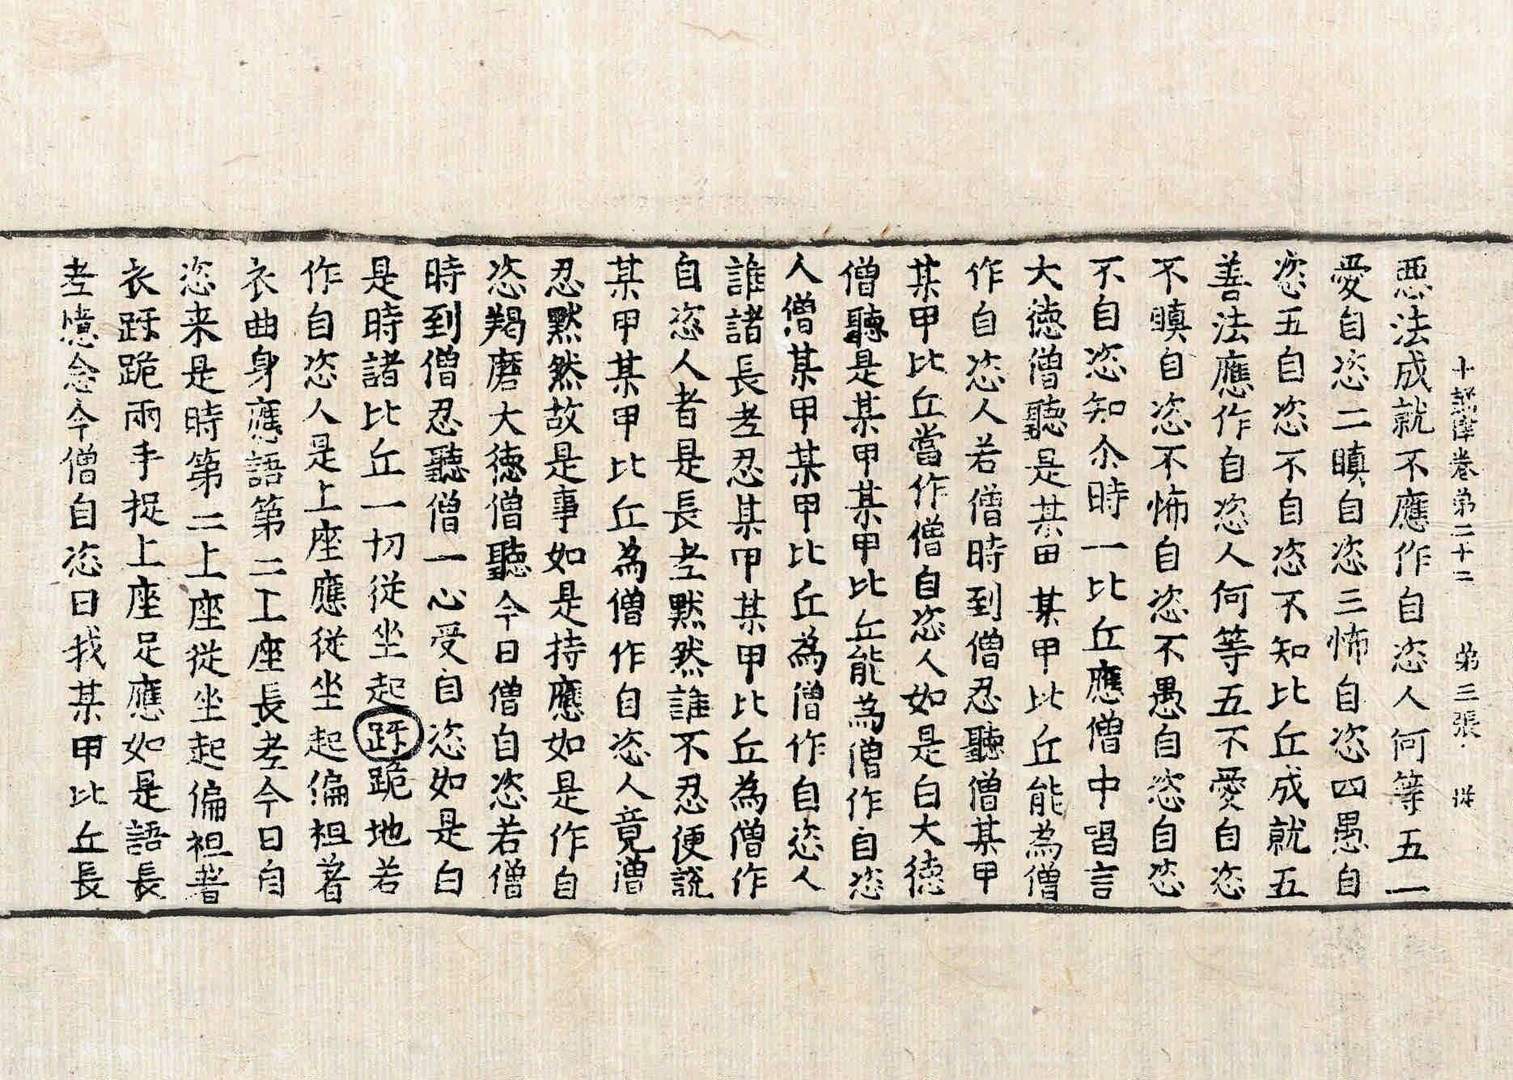 十誦律卷第二十三 第三張 從
惡法成就不應作自恣人何等五一
愛自恣二瞋自恣三怖自恣四愚自
恣五自恣不自恣不知比丘成就五
善法應作自恣人何等五不愛自恣
不瞋自恣不怖自恣不愚自恣自恣
不自恣知尒時一比丘應僧中唱言
大徳僧聽是某甲某甲比丘能為僧
作自恣人若僧時到僧忍聽僧某甲
某甲比丘當作僧自恣人如是白大徳
僧聽是某甲某甲比丘能為僧作自恣
人僧某甲某甲比丘為僧作自恣人
誰諸長老忍某甲某甲比丘為僧作
自恣人者是長老黙然誰不忍便說
某甲某甲比丘為僧作自恣人竟僧
忍黙然故是事如是持應如是作自
恣羯磨大徳僧聽今日僧自恣若僧
時到僧忍聽僧一心受自恣如是白
是時諸比丘一切従坐起跪地若
作自恣人是上座應従坐起偏袒著
衣曲身應語第二上座長老今日自
恣来是時第二上座従坐起偏袒著
衣跪兩手捉上座足應如是語長
老憶念今僧自恣日我某甲比丘長